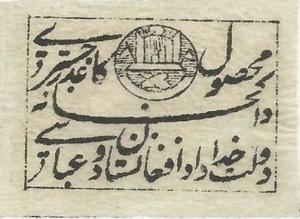 محصول کاغذ رجستری
داکخانه
دولت خداداد افغانستان دو عباسی